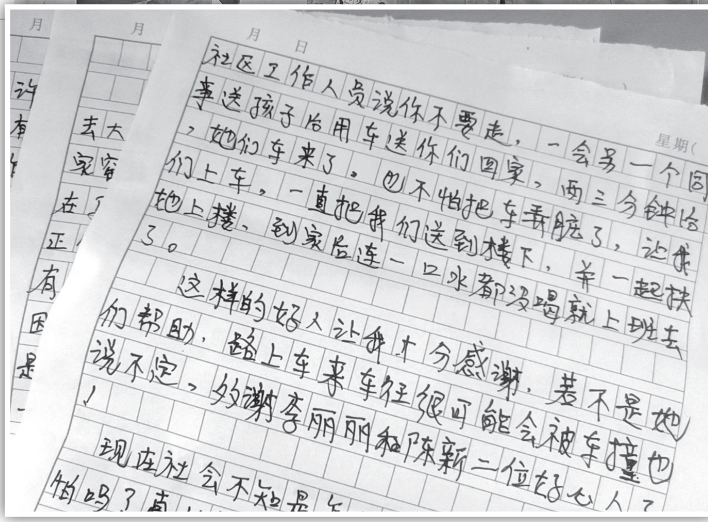 月
月
月 日
星期(
许
去大
在
正
有
因
是
一
社区工作人员说你不要走，一会另一个同
事送孩子后用车送你们回家，两三分钟后
，她们车来了。也不怕把车弄脏了，让我
们上车。一直把我们送到楼下，并一起扶
她上楼，到家后连一口水都没喝就上班去
了。
这样的好人让我十分感谢，若不是她
们帮助，路上车来车往很可能会被车撞也
说不定。多谢李丽丽和陈新二位好心人了
！
现在社会不知是
怕吗了